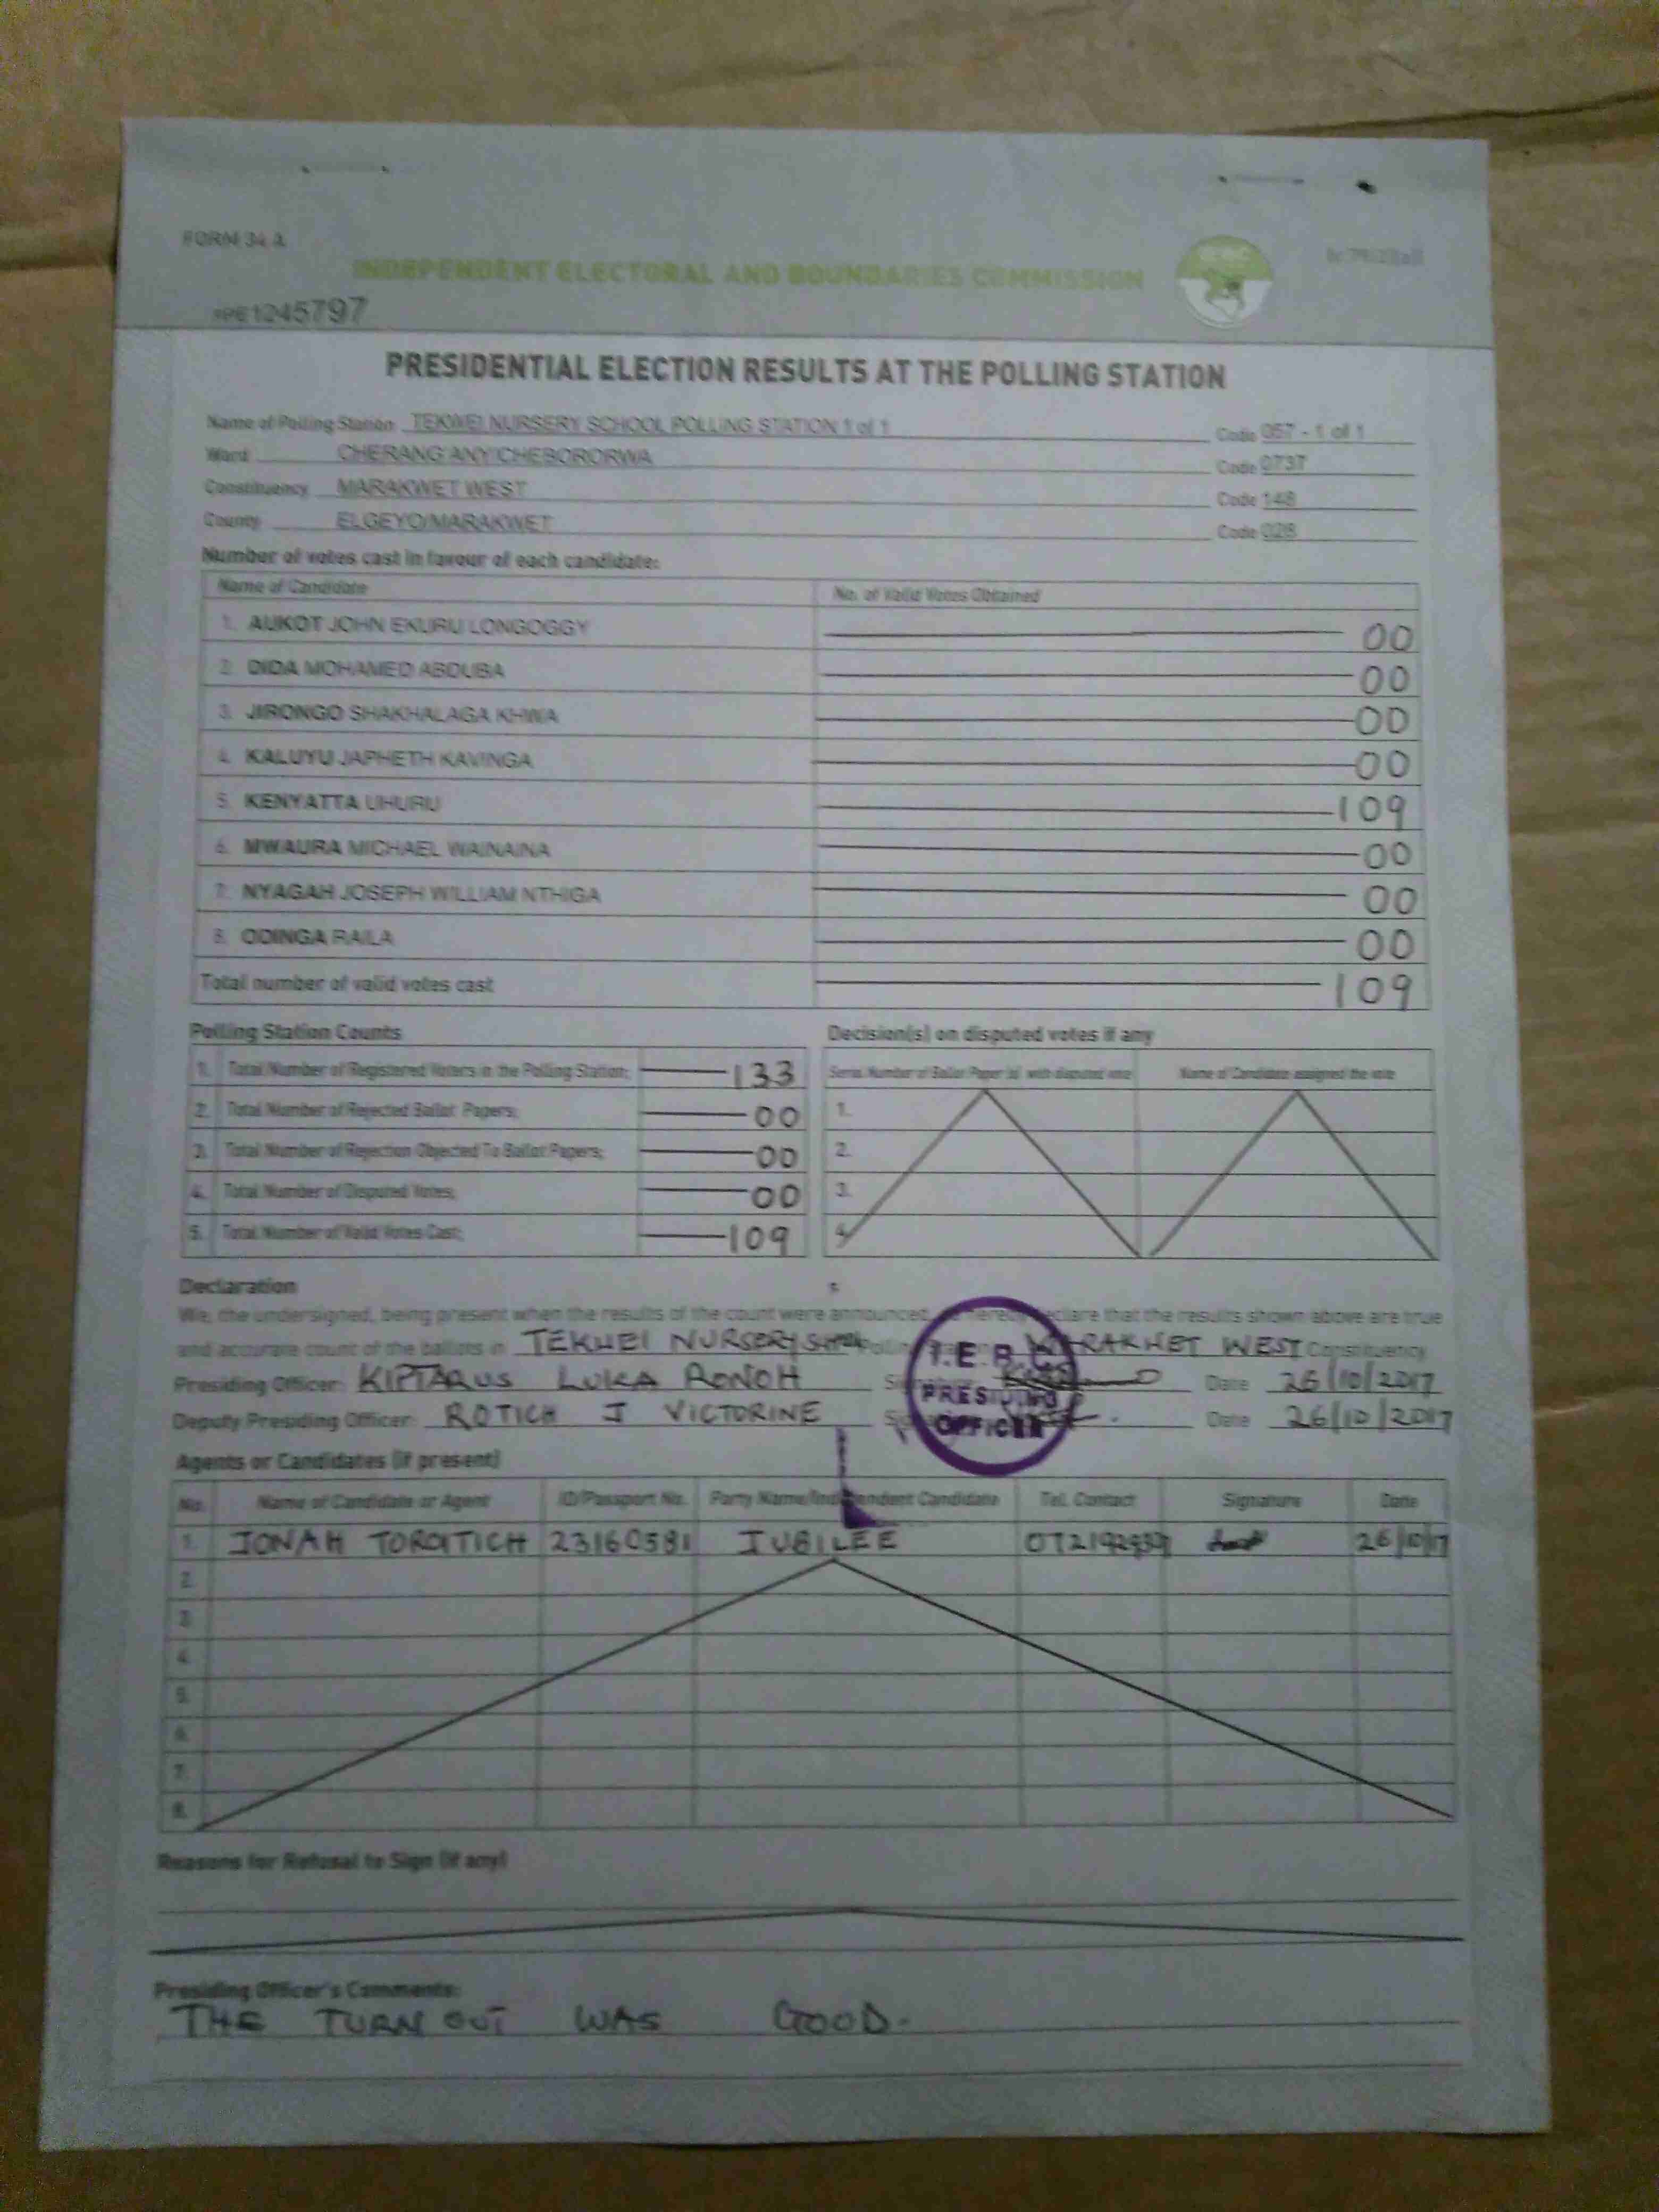 FORM 34 A
INDEPENDENT ELECTORAL AND BOUNDARIES COMMISSION
1245797
PRESIDENTIAL ELECTION RESULTS AT THE POLLING STATION
Name of Polling Station TEKWEI NURSERY SCHOOL POLLING STATION 1 of 1 Code 057 - 1 of 1
Ward CHERANG'ANY/CHEBORORWA Code 0737
Constituency MARAKWET WEST Code 148
County ELGEYO/MARAKWET Code 028
Number of votes cast in favour of each candidate:
Name of Candidate No. of Valid Votes Obtained
1. AUKOT JOHN EKURU LONGOGGY 00
2. DIDA MOHAMED ABDUBA 00
3. JIRONGO SHAKHALAGA KHWA 00
4. KALUYU JAPHETH KAVINGA 00
5. KENYATTA UHURU 109
6. MWAURA MICHAEL WAINAINA 00
7. NYAGAH JOSEPH WILLIAM NTHIGA 00
8. ODINGA RAILA 00
Total number of valid votes cast 109
Polling Station Counts
1. Total Number of Registered Voters in the Polling Station; 133
2. Total Number of Rejected Ballot Papers; 00
3. Total Number of Rejection Objected To Ballot Papers; 00
4. Total Number of Disputed Votes; 00
5. Total Number of Valid Votes Cast; 109
Decision(s) on disputed votes if any
Serial Number of Ballot Paper (s) with disputed vote Name of Candidate assigned the vote
1.
2.
3.
4.
Declaration
We, the undersigned, being present when the results of the count were announced, hereby declare that the results shown above are true
and accurate count of the ballots in TEKWEI NURSERY MARAKWET WEST Constituency
Presiding Officer: KIPTARUS LUKA RONOH Date 26/10/2017
Deputy Presiding Officer: ROTICH J VICTORINE Date 26/10/2017
I.E.B.C
PRESIDING
OFFICER
Agents or Candidates (if present)
No. Name of Candidate or Agent ID/Passport No. Party Name/Independent Candidate Tel. Contact Signature Date
1. JONAH TOROITICH 23160581 JUBILEE 26/10/17
2.
3.
4.
5.
6.
7.
8.
Reasons for Refusal to Sign (if any)
Presiding Officer's Comments:
THE TURN OUT WAS GOOD.